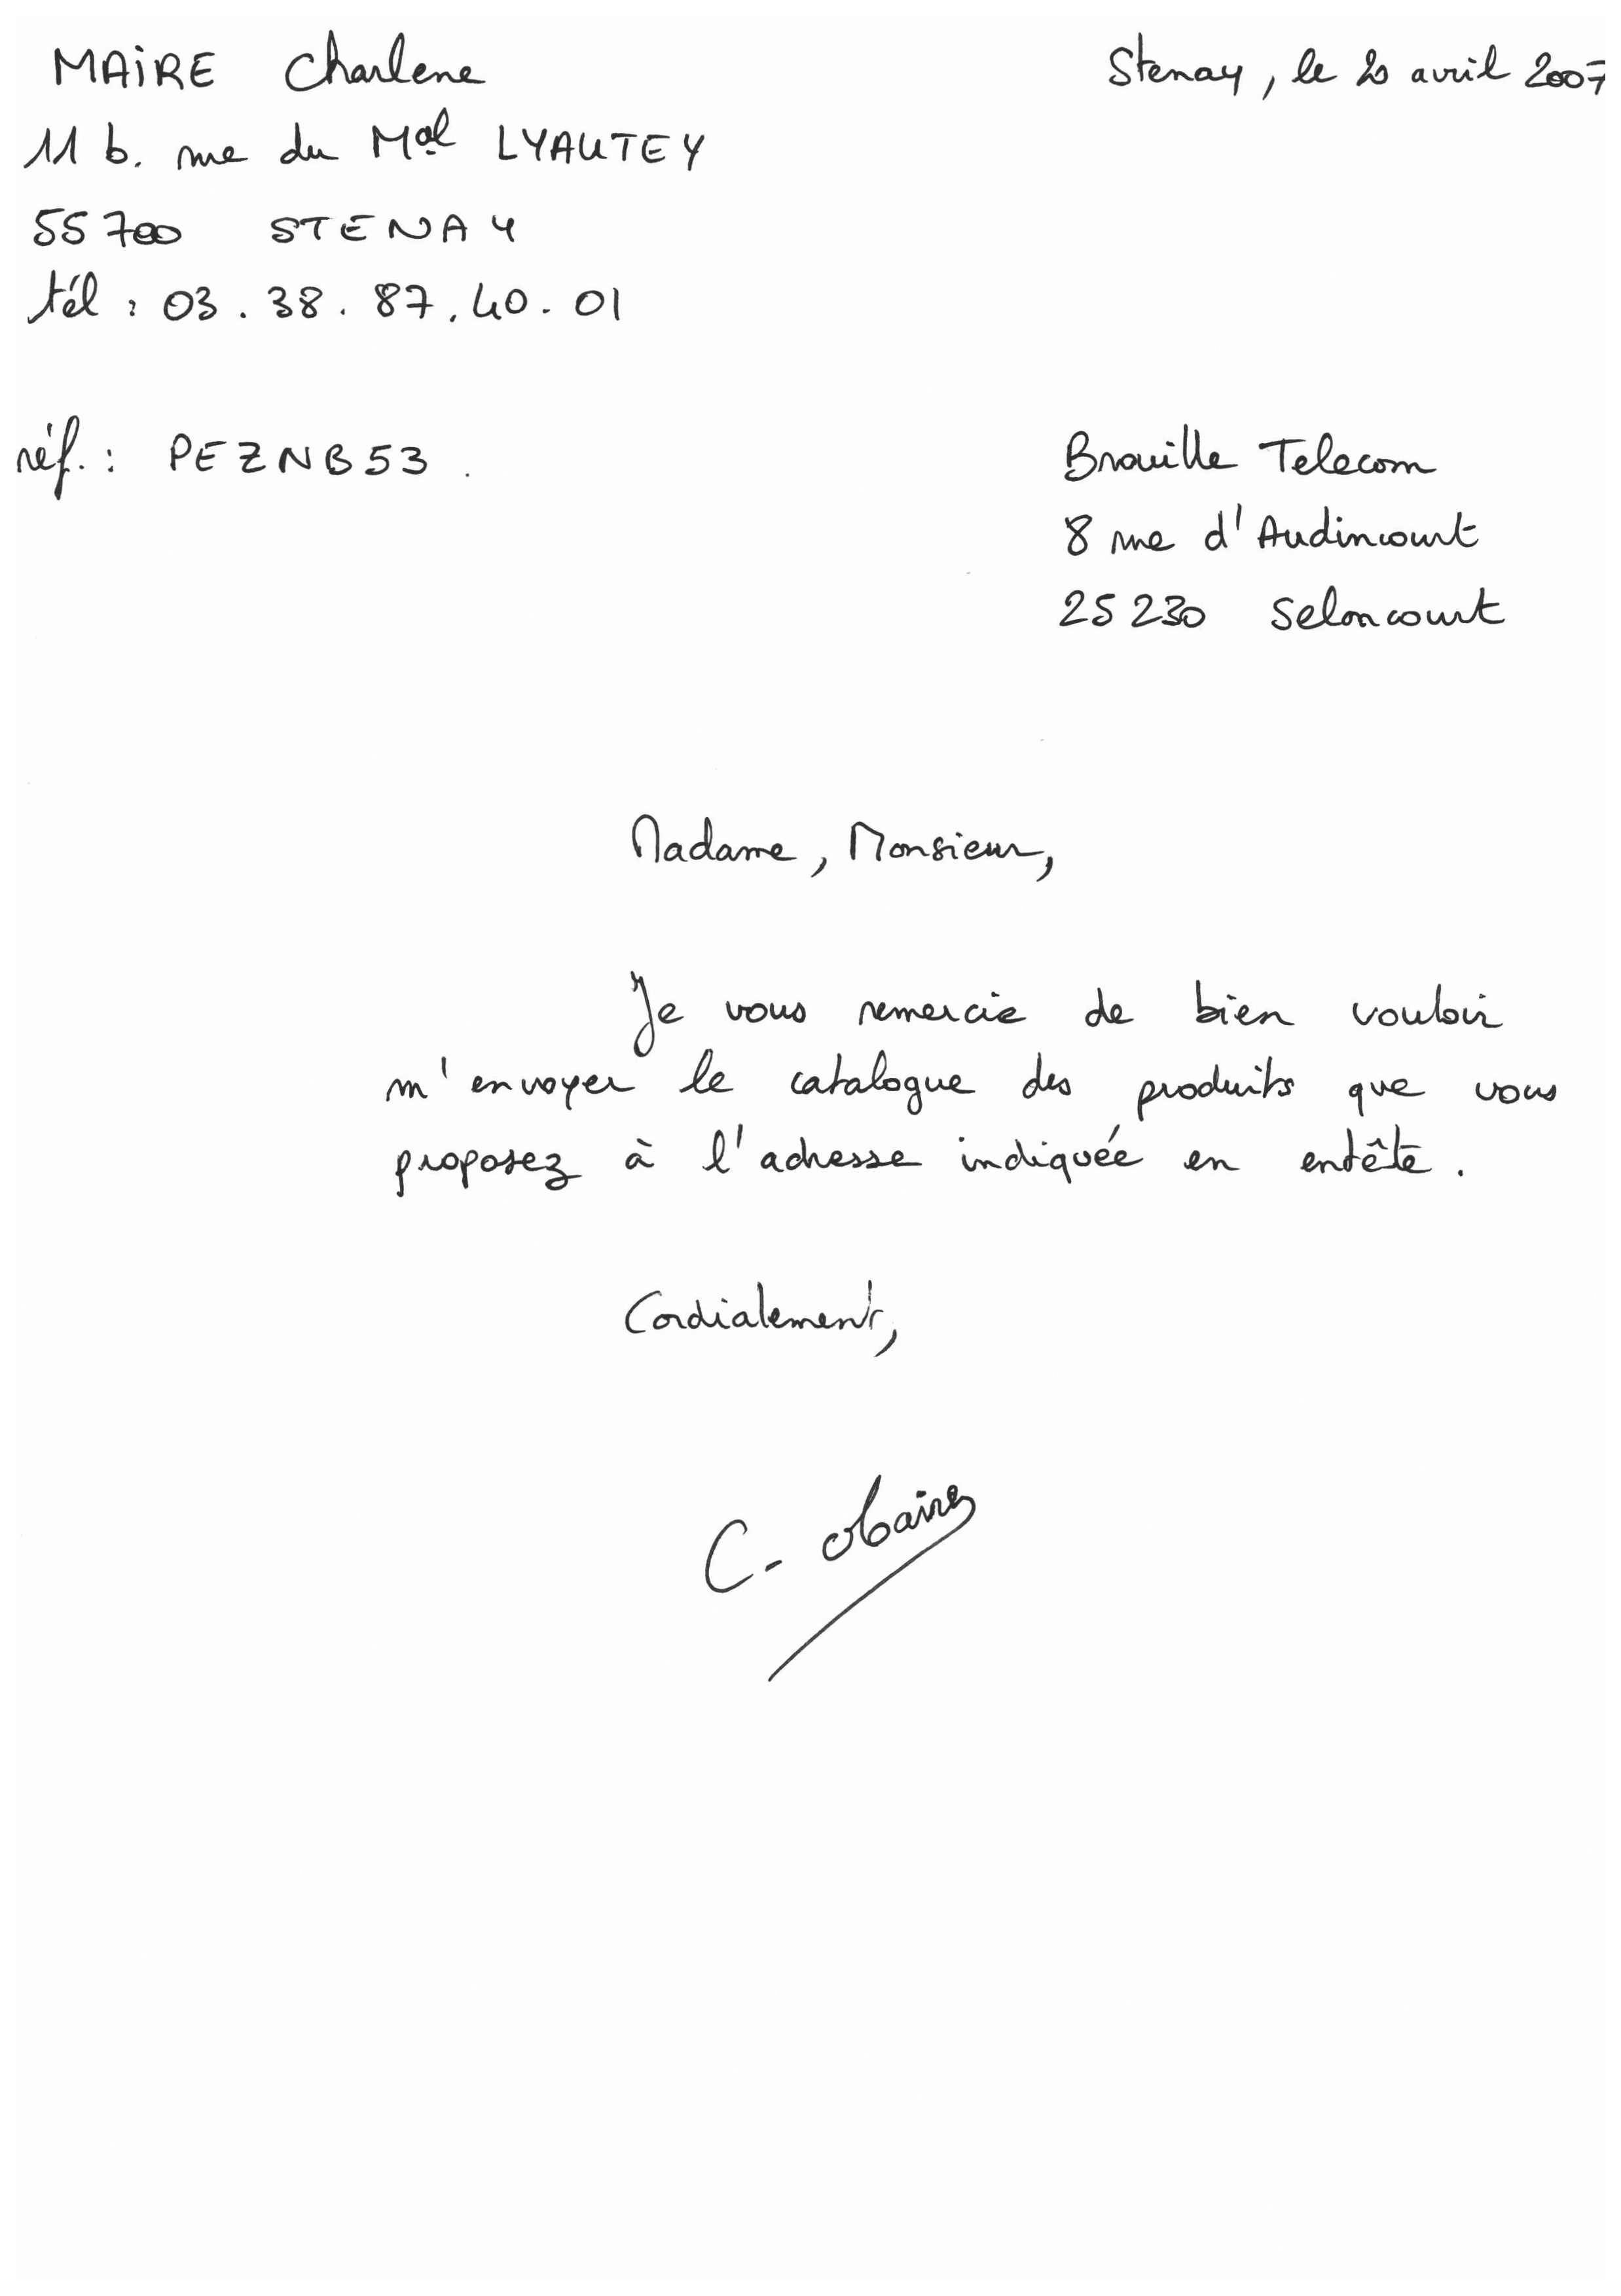 MAIRE Charlene
Stenay, le 20 avril 2007
11 b. rue du Mal LYAUTEY
55700 STENAY
tél : 03.38.87.40.01
réf. : PEZNB53.
Brouille Telecom
8 rue d'Audincourt
25230 Seloncourt
Madame, Monsieur,
Je vous remercie de bien vouloir
m'envoyer le catalogue des produits que vous
proposez à l'adresse indiquée en entête.
Cordialement,
C. Maire